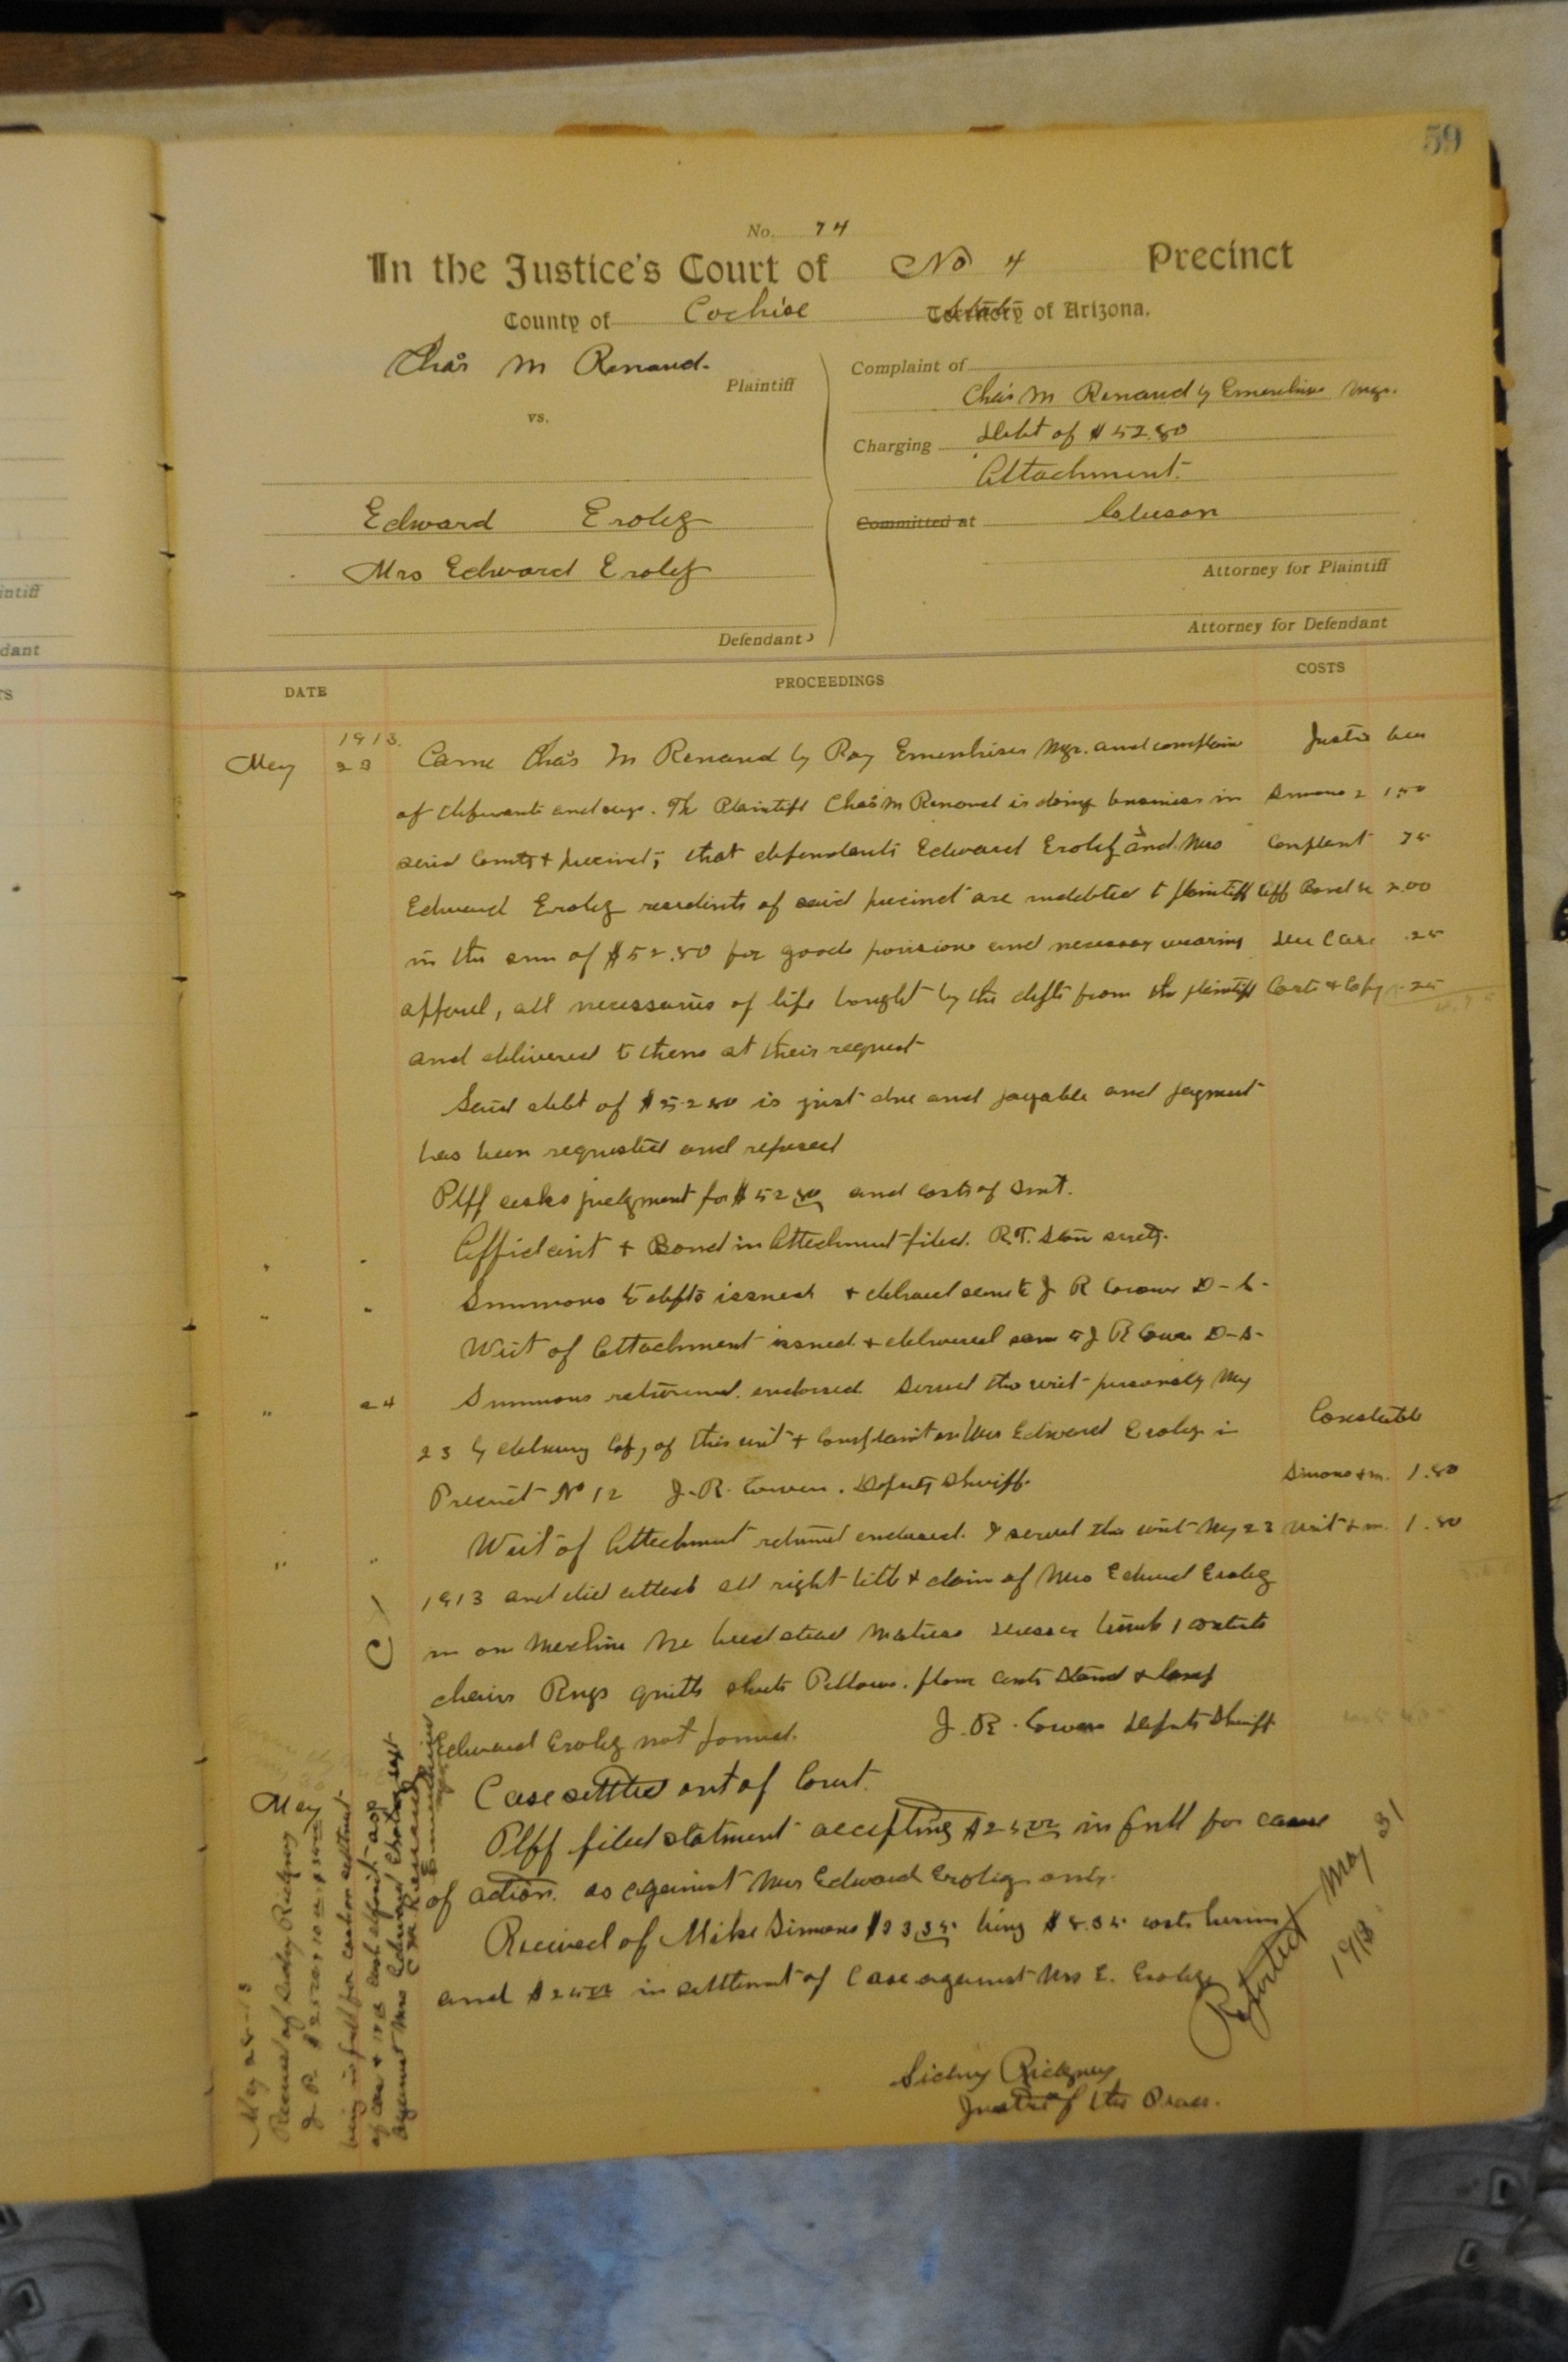 59
No. 74
In the Justice's Court of No 4 Precinct
County of Cochise State of Arizona.
Chas M Renaud.
Plaintiff
vs.
Edward Erolez
Mrs Edward Erolez
Defendants
Complaint of
Chas M Renaud by Emenhiser Mgr.
Charging Debt of $52.80
Attachment.
Committed at
Attorney for Plaintiff
Attorney for Defendant
DATE PROCEEDINGS COSTS
1913.
May 23 Came Chas M Renaud by Roy Emenhiser Mgr. and complain Justice
of defendants and says. The Plaintiff Chas M Renaud is doing business in Summons 2 1.50
said County & precinct; that defendants Edward Erolez and Mrs Complaint 75
Edward Erolez residents of said precinct are indebted to plaintiff Aff Bond 2.00
in the sum of $52.80 for goods provisions and necessary wearing Case .25
apparel, all necessaries of life bought by the defts from the plaintiff Costs & Copy .25
and delivered to them at their request
Said debt of $52.80 is just due and payable and payment
has been requested and refused
Plff asks judgment for $52.80 and costs of Suit.
Affidavit & Bond in Attachment filed. R.T. surety.
Summons to defts issued & delivered same to J R Cowen D-S-
Writ of Attachment issued & delivered same to J R Cowen D-S-
" 24 Summons returned endorsed Served this writ personally May
23 by delivery Copy of this writ & Complaint on Mrs Edward Erolez in Constable
Precinct No 12 J.R. Cowen. Deputy Sheriff. Simons & m. 1.80
" " Writ of Attachment returned endorsed. I served this writ May 23 writ & m. 1.80
1913 and did attach all right title & claim of Mrs Edward Erolez
in on bedstead Matress
chairs Rugs quilts sheets Pillows. Stand & lamp
Edward Erolez not found. J.R. Cowen Deputy Sheriff
Case settled out of Court.
May Plff filed statment accepting $25.00 in full for cause
of action. as against Mrs Edward Erolez only.
Received of Mike Simons $33.35 being $8.35 costs herein
and $25.00 in settlement of Case against Mrs E. Erolez
Reported May 31
1913.
Sidney Rickney
Justice of the Peace.
May 28-13
Received of Sidney Rickney
J. P.
being in full for
against Mrs Edward Erolez
C M Renaud
Emenhiser
Mgr